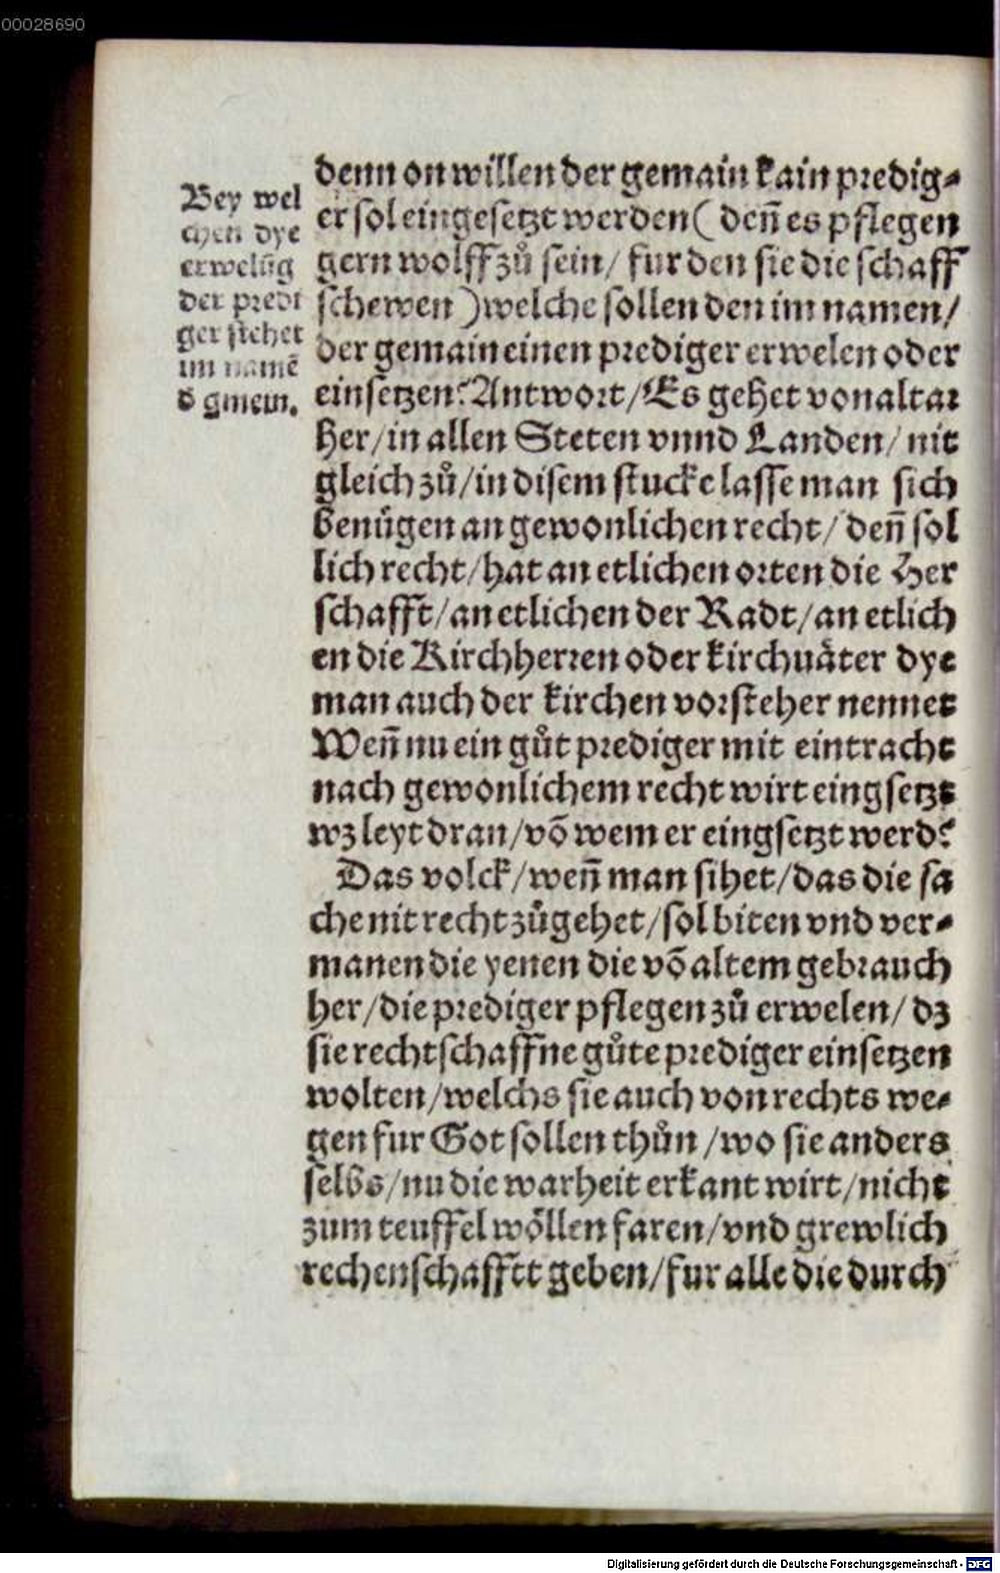 00028690
Bey wel
chen dye
erwelūg
der predi
ger stehet
im namē
d̓ gmein.
denn on willen der gemain kain predig⸗
er sol eingesetzt werden ( den̄ es pflegen
gern wolff zů sein / fur den sie die schaff
schewen ) welche sollen den im namen /
der gemain einen prediger erwelen oder
einsetzen? Antwort / Es gehet von altar
her / in allen Steten vnnd Landen / nit
gleich zů / in disem stucke lasse man sich
benůgen an gewonlichen recht / den̄ sol
lich recht / hat an etlichen orten die Her
schafft / an etlichen der Radt / an etlich
en die Kirchherren oder kirchuåter dye
man auch der kirchen vorsteher nennet
Wen̄ nu ein gůt prediger mit eintracht
nach gewonlichem recht wirt eingsetzt
wz leyt dran / vō wem er eingsetzt werd?
Das volck / wen̄ man sihet / das die sa
che nit recht zůgehet / sol biten vnd ver⸗
manen die yenen die vō altem gebrauch
her / die prediger pflegen zů erwelen / dz
sie rechtschaffne gůte prediger einsetzen
wolten / welchs sie auch von rechts we⸗
gen fur Got sollen thůn / wo sie anders
selbs / nu die warheit erkant wirt / nicht
zum teuffel wöllen faren / vnd grewlich
rechenschafftt geben / fur alle die durch
Digitalisierung gefördert durch die Deutsche Forschungsgemeinschaft - DFG